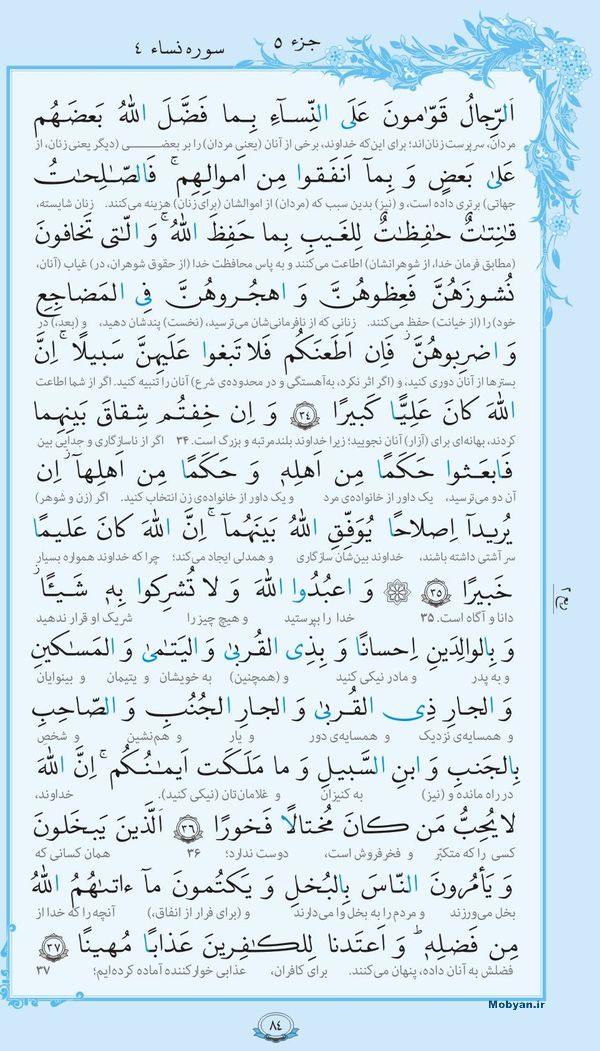 جزء ۵
سوره نساء ۴
اَلرِّجالُ قَوّٰامونَ عَلَی النِّسآءِ بِـما فَضَّلَ اللهُ بَعضَهُم
مردان، سرپرست زنان‌اند؛ برای این‌که خداوند، برخی از آنان (یعنی مردان) را بر بعضی (دیگر یعنی زنان، از
عَلیٰ بَعضٍ وَ بِمآ اَنفَقوا مِن اَموالِهِم ۚ فَالصّٰلِحٰتُ
جهاتی) برتری داده است، و (نیز) بدین سبب که (مردان) از اموالشان (برای زنان) هزینه می‌کنند. زنان شایسته،
قٰنِتٰتٌ حٰفِظٰتٌ لِلغَیبِ بِما حَفِظَ اللهُ ۚ وَ الّٰتی تَخافونَ
(مطابق فرمان خدا، از شوهرانشان) اطاعت می‌کنند و به پاس محافظت خدا (از حقوق شوهران، در) غیاب (آنان،
نُشوزَهُنَّ فَعِظوهُنَّ وَ اهجُروهُنَّ فِی المَضاجِعِ
خود) را (از خیانت) حفظ می‌کنند. زنانی که از نافرمانی‌شان می‌ترسید، (نخست) پندشان دهید، و (بعد،) در
وَ اضرِبوهُنَّ ۖ فَاِن اَطَعنَکُم فَلا تَبغوا عَلَیهِنَّ سَبیلًا ۗ اِنَّ
بسترها از آنان دوری کنید، و (اگر اثر نکرد، به‌آهستگی و در محدوده‌ی شرع) آنان را تنبیه کنید. اگر از شما اطاعت
اللهَ کانَ عَلِیًّا کَبیرًا ﴿۳۴﴾ وَ اِن خِفتُم شِقاقَ بَینِهِما
کردند، بهانه‌ای برای (آزار) آنان نجویید؛ زیرا خداوند بلندمرتبه و بزرگ است. ۳۴ اگر از ناسازگاری و جدایی بین
فَابعَثوا حَکَمًا مِن اَهلِهٖ وَ حَکَمًا مِن اَهلِها اِن
آن دو می‌ترسید، یک داور از خانواده‌ی مرد و یک داور از خانواده‌ی زن انتخاب کنید. اگر (زن و شوهر)
یُریدآ اِصلاحًا یُوَفِّقِ اللهُ بَینَهُمآ ۗ اِنَّ اللهَ کانَ عَلیمًا
سر آشتی داشته باشند، خداوند بین‌شان سازگاری و همدلی ایجاد می‌کند؛ چرا که خداوند همواره بسیار
خَبیرًا ﴿۳۵﴾ وَ اعبُدُوا اللهَ وَ لا تُشرِکوا بِهٖ شَیئًا ۖ
دانا و آگاه است. ۳۵ خدا را بپرستید و هیچ چیز را شریک او قرار ندهید
وَ بِالوالِدَینِ اِحسانًا وَ بِذِی القُربیٰ وَ الیَتٰمیٰ وَ المَسٰکینِ
و به پدر و مادر نیکی کنید و (همچنین) به خویشان و یتیمان و بینوایان
وَ الجارِ ذِی القُربیٰ وَ الجارِ الجُنُبِ وَ الصّاحِبِ
و همسایه‌ی نزدیک و همسایه‌ی دور و یار و هم‌نشین و شخص
بِالجَنبِ وَ ابنِ السَّبیلِ وَ ما مَلَکَت اَیمٰنُکُم ۗ اِنَّ اللهَ
در راه مانده و (نیز) به کنیزان و غلامان‌تان (نیکی کنید). خداوند،
لا یُحِبُّ مَن کانَ مُختالًا فَخورًا ﴿۳۶﴾ اَلَّذینَ یَبخَلونَ
کسی را که متکبّر و فخرفروش است، دوست ندارد؛ ۳۶ همان کسانی که
وَ یَأمُرونَ النّاسَ بِالبُخلِ وَ یَکتُمونَ مآ ءاتٰىهُمُ اللهُ
بخل می‌ورزند و مردم را به بخل وا می‌دارند و (برای فرار از انفاق،) آنچه را که خدا از
مِن فَضلِهٖ ۗ وَ اَعتَدنا لِلکٰفِرینَ عَذابًا مُهینًا ﴿۳۷﴾
فضلش به آنان داده، پنهان می‌کنند. برای کافران، عذابی خوارکننده آماده کرده‌ایم؛ ۳۷
Mobyan.ir
۸۴